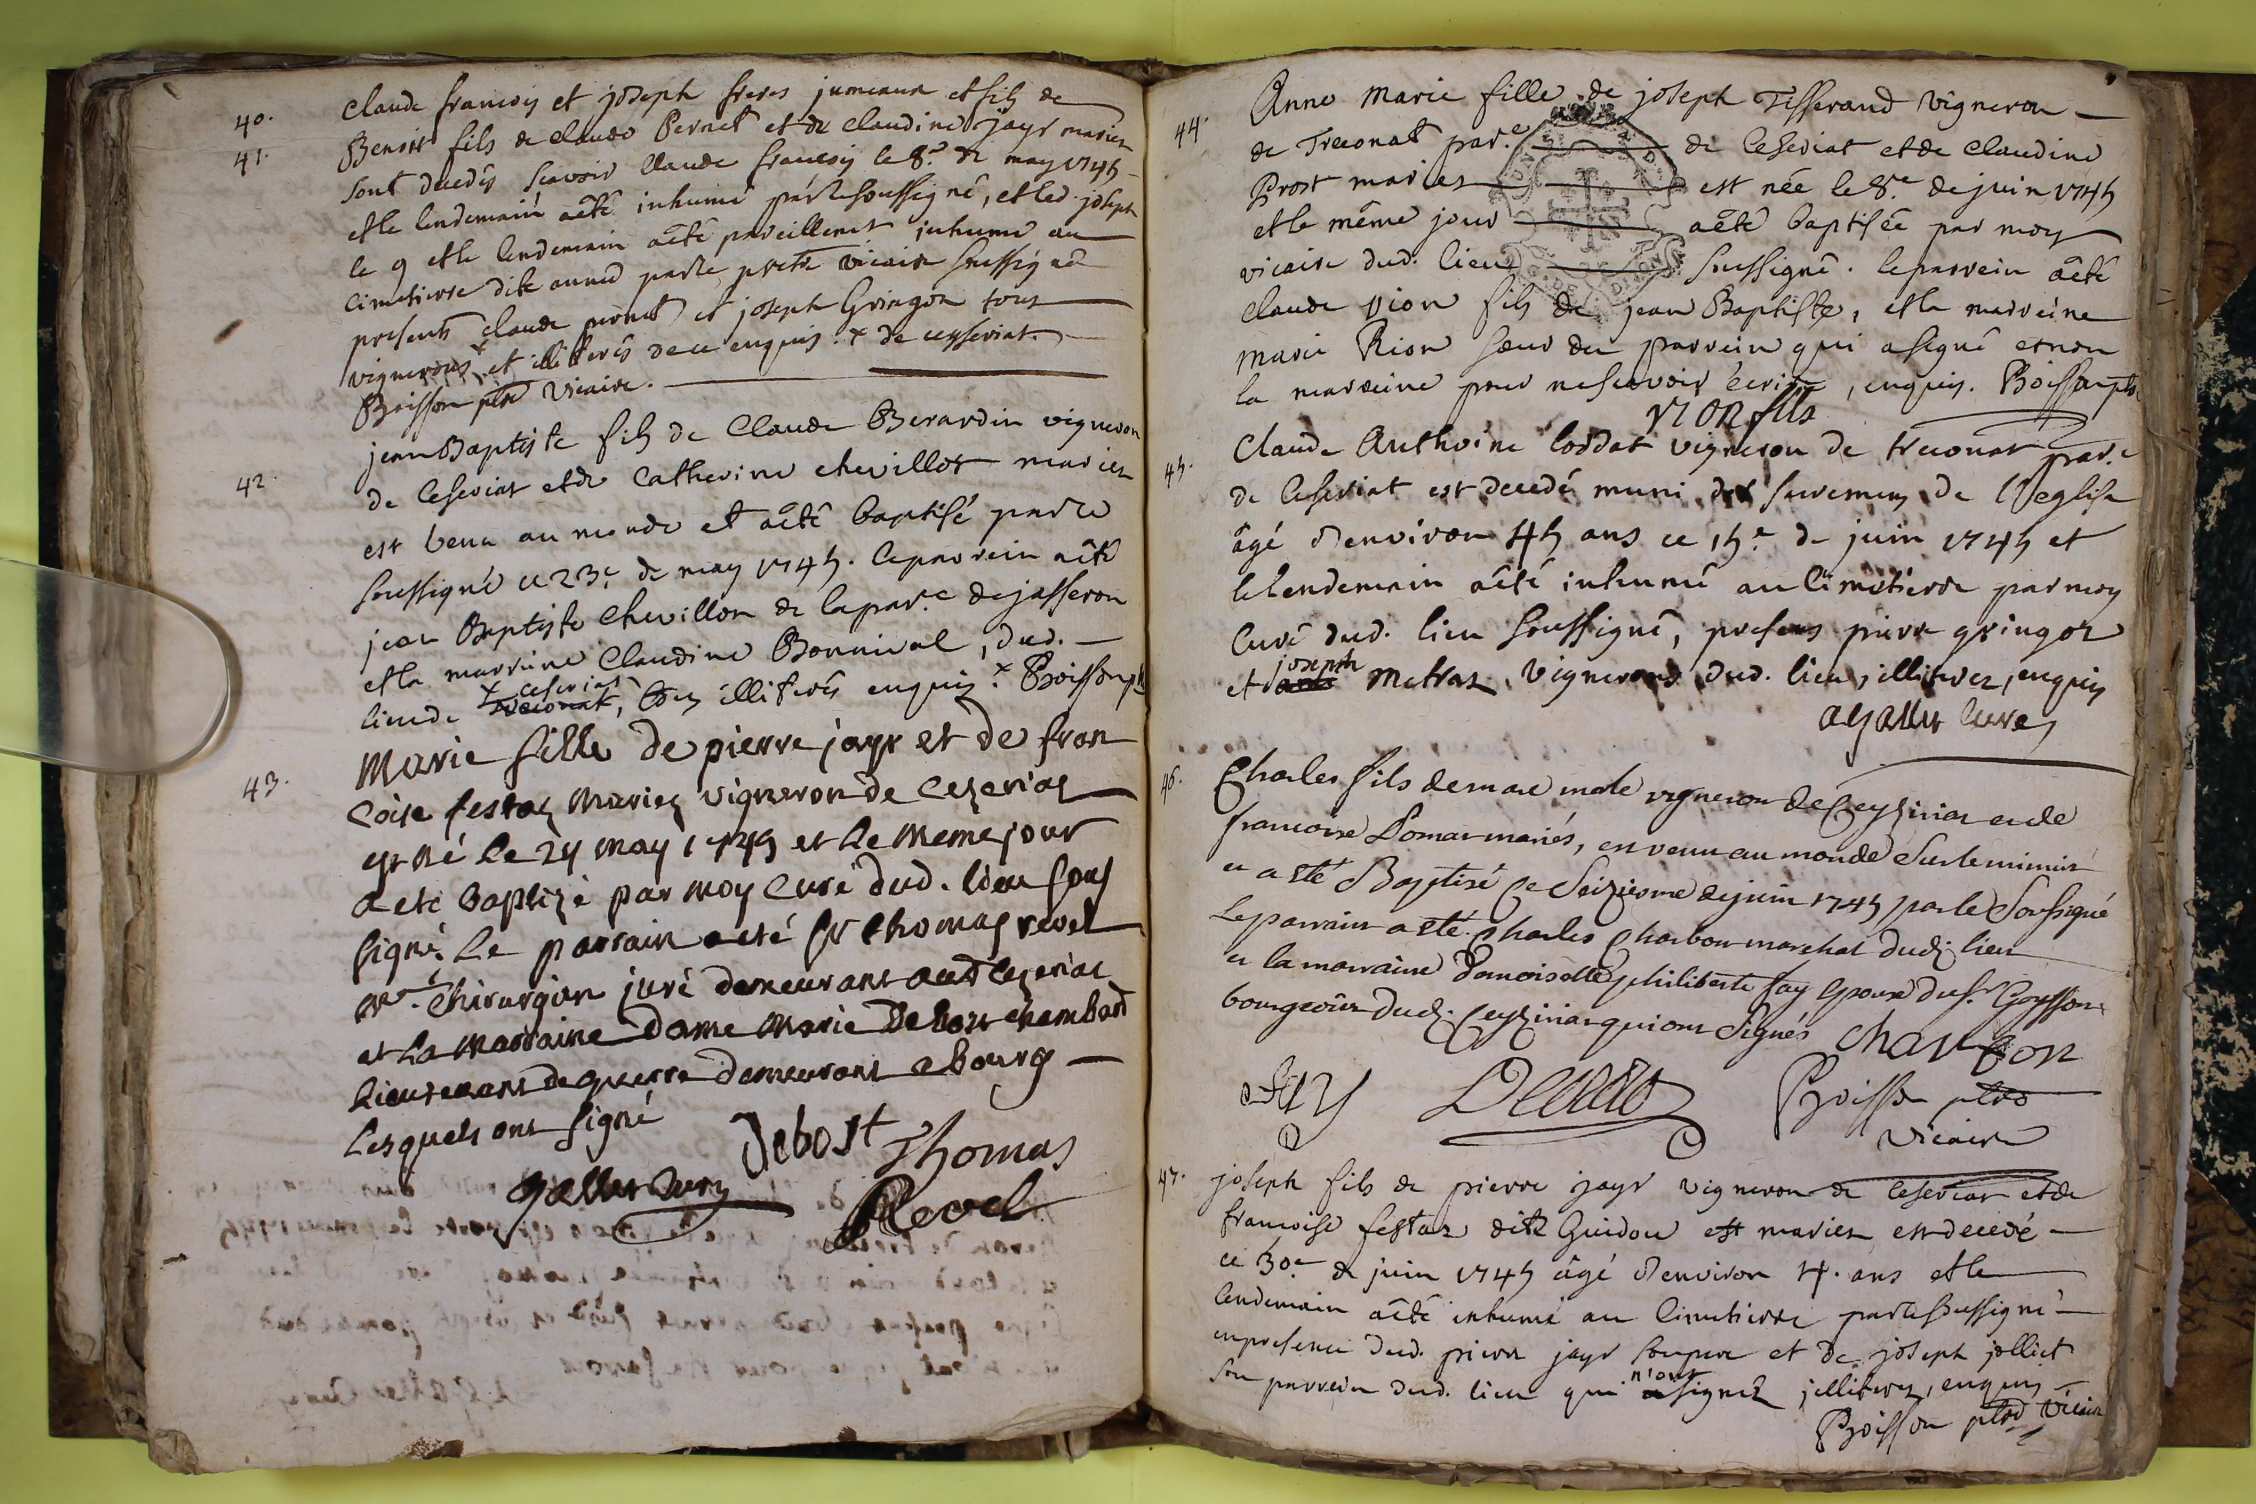 40.
Claude francois et joseph freres jumeaux et fils de
41.
Benoit fils de claude Pernet et de Claudine Jayr mariez
sont decedés scavoir Claude francois le 8.e de may 1745
et le lendemain aêté inhumé par le soussigné, et led. joseph
le 9 et le lendemain aêté pareillement inhumé au
cimetierre par le pretre vicaire soussigné
presents claude pernet et joseph Gringoz tous
vignerons x et illiterés de ce enquis. x de ceyseriat.
Boisson ptre vicaire.
42.
jean Baptiste fils de Claude Berardin vigneron
de Ceseriat et de Catherine chevillot mariez
est venu au monde et aêté baptisé par le
soussigné ce 23.e de may 1745. le parrein aêté
jean Baptiste Chevillon de la par.e de jasseron
et la marreine Claudine Bonnival, dud.
x ceseriat
lieu de treconat, illiterés enquis x Boisson ptre
43.
Marie fille de pierre jayr et de fran
coise festaz Mariez vigneron de Cezeriat
est né Le 24 may 1745 et Le Meme jour
a eté baptizé par moy Curé dud. lieu sous
signé. Le parrain a eté sr thomas revel
Mre. Chirurgien juré demeurant aud Cezeriat
et La Marraine dame Marie Debost chambard
Lieutenant de guerre demeurant a bourg
Lesquels ont signé
Debost
Thomas
Revel
44.
Anne Marie fille de joseph Tisserand Vigneron
de Treconat par.e de Ceseriat et de Claudine
Prost mariez est née le 8.e de juin 1745
et le même jour aêté baptisée par moy
vicaire dud. lieu soussigné. le parrein aêté
Claude vion fils de jean Baptiste, et la marreine
Marie Rion sœur du parrein qui a signé et non
la marreine pour ne scavoir écrire, enquis. Boisson ptre
vion fils
45.
Claude Anthoine Coddat vigneron de treconat par.e
de Ceseriat est decedé muni des sacremens de l'eglise
âgé d'environ 45 ans ce 15.e de juin 1745 et
le lendemain aêté inhumé au Cimetierre par moy
Curé dud. lieu soussigné, presens pierre gringoz
joseph
et Metraz, Vignerons dud. lieu, illiterez, enquis
Curé
46.
Charles fils de marc vigneron de Ceyziriat et de
francoise mariés, est venu au monde sur le minuit
et a eté Baptisé ce Seizieme de juin 1745 par le Soussigné
Le parrain a eté Charles Charbon marechal dud. lieu
et la marraine Damoiselle philiberte fay epouse du sr. Goysson
bourgeois dud. Ceyziriat qui ont Signés Charbon
fay
Boisson ptre
vicaire
47.
joseph fils de pierre jayr vigneron de Ceseriat et de
francoise festaz dite Guidon est mariez est decedé
ce 30.e de juin 1745 âgé d'environ 4. ans et le
lendemain aêté inhumé au Cimetierre par le soussigné
en presence dud. pierre jayr son pere et de joseph jolliet
n'ont
son parrein dud. lieu qui signez jllitterez, enquis
Boisson ptre Vicaire